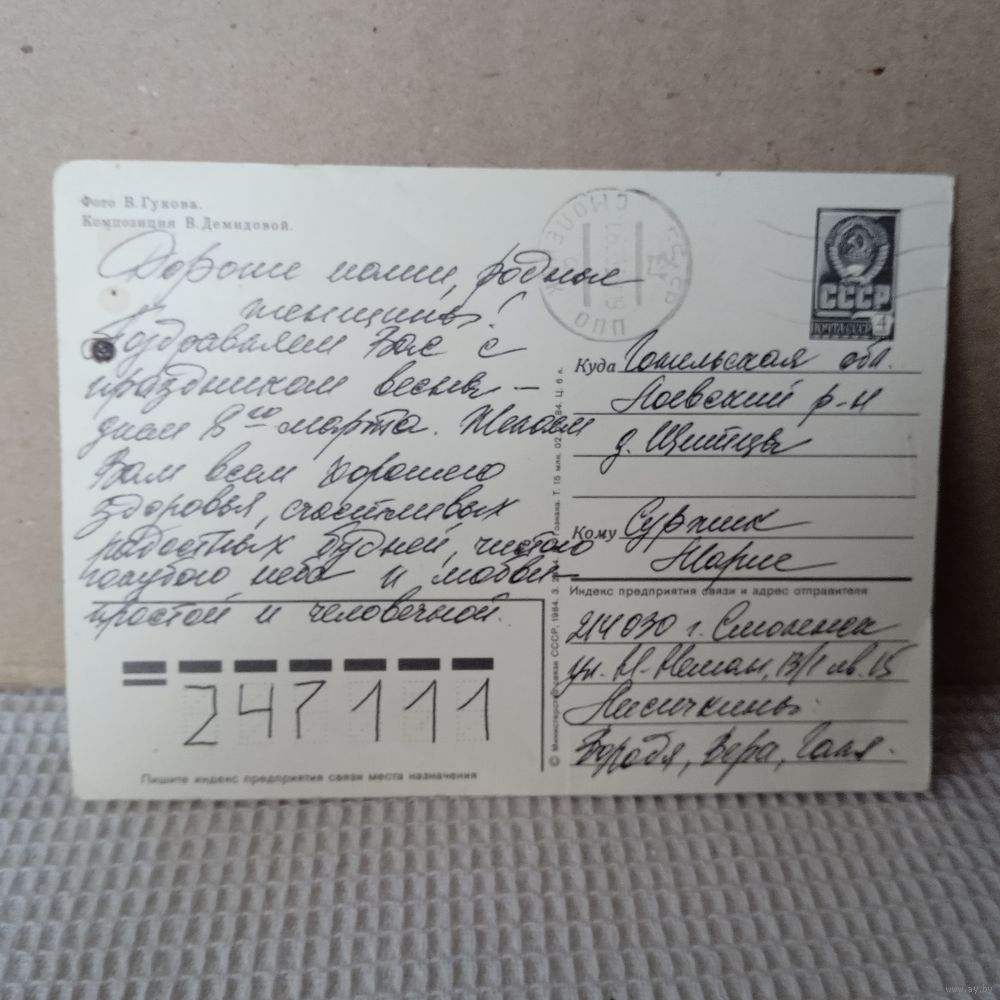 Фото В. Гукова.
Композиция В. Демидовой.
Дорогие наши, родные
женщины!
Поздравляем Вас с
праздником весны –
днем 8го марта. Желаем
Вам всем хорошего
здоровья, счастливых
радостных будней, чистого
голубого неба и любви
простой и человечной.
247111
Пишите индекс предприятия связи места назначения
© Министерство связи СССР, 1984. З. Гознака. Т. 15 млн. 02. 84. Ц. 6 к.
СМОЛЕНСК
СССР
ПОЧТА СССР 4
Куда Гомельская обл.
Лоевский р-н
д. Щитцы
Кому
Марие
Индекс предприятия связи и адрес отправителя
214030 г. Смоленск
ул. Н-Неман, 13/1 кв. 15
Лисичкины:
Вера, Галя.
www.ay.by